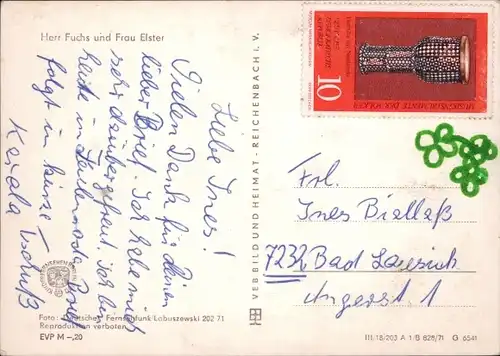 Herr Fuchs und Frau Elster
Liebe Ines!
Vielen Dank für Deinen
lieben Brief. Ich habe mich
sehr darüber gefreut. Ich
heute in
folgt in kürze
Karola
Foto: Deutscher Fernsehfunk Labuszewski 202 71
Reproduktion verboten
EVP M –,20
VEB BILD UND HEIMAT · REICHENBACH i. V.
10
MUSIKINSTRUMENTE DER VÖLKER
Frl.
Ines Biellaß
7232 Bad Lausick
Angerst. 1
III/18/203 A 1/B 828/71 G 6541